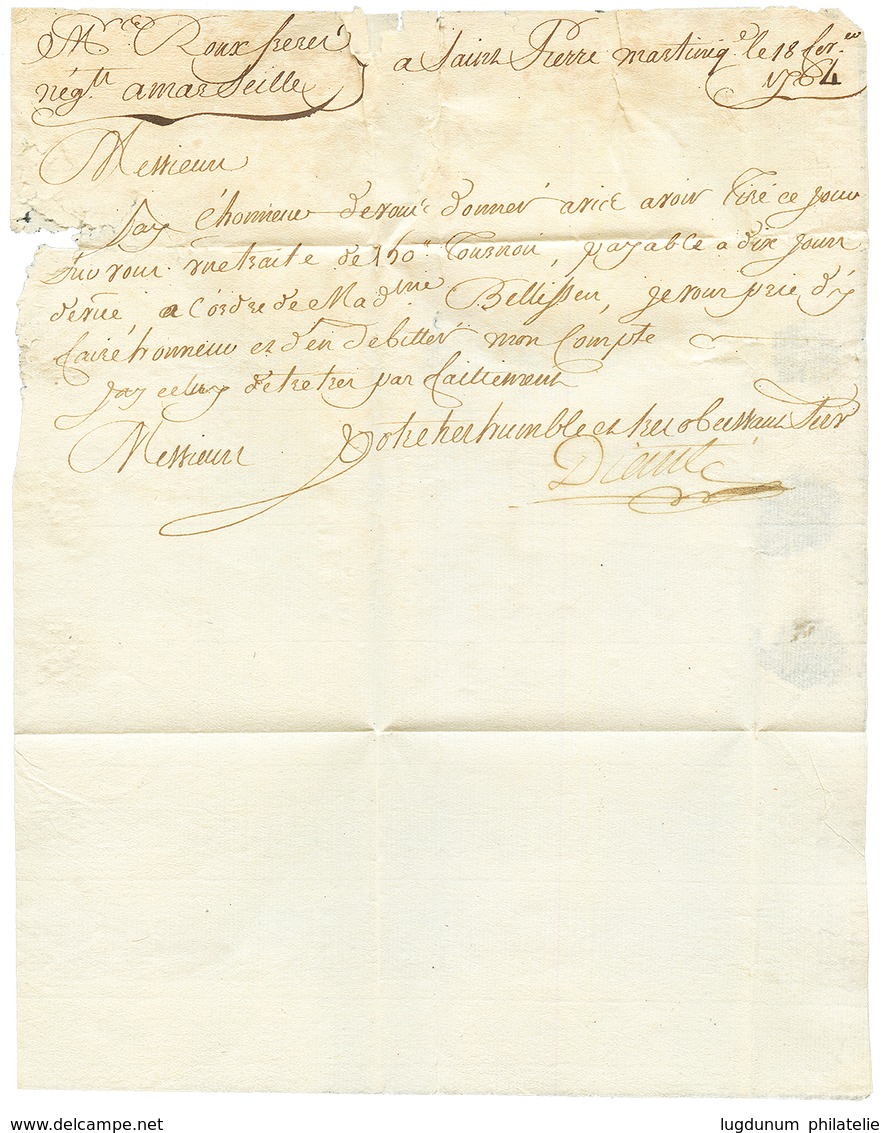 Mrs Roux freres a Saint Pierre martiniq.e le 18 fev.er
nég.ts a marseille 1764
Messieurs
Jay l'honneur de vous donner avis avoir tiré ce jour
sur vous une traite de 150# tournois, payable a dix jours
de vue, a l'ordre de Mad.me Bellissen, je vous prie d'y
faire honneur et d'en debitter mon Compte
Jay celuy d'etre tres parfaittement
Messieurs Votre tres humble et tres obeissant ser
Diant
www.delcampe.net lugdunum philatelie